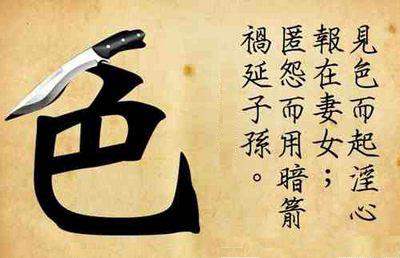 見色而起淫心
報在妻女；
匿怨而用暗箭
禍延子孫。
色